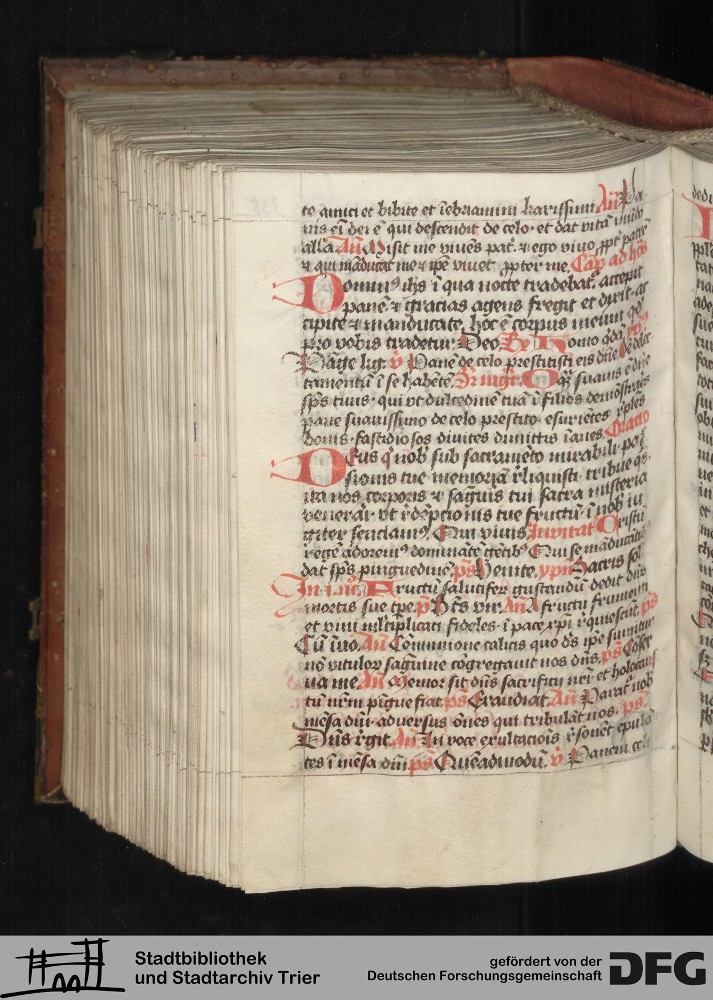 te amici et bibite et īebriamini karissimi Añ Pa
nis ei dei ē qui descendit de celo et dat vitā mūdo
alla Añ Misit me viuēs pat̄ et ego viuo ꝓpt̄ patrē
et qui māducat me et ip̄e viuet ꝓpter me Cap̄ ad
Dominꝰ ih̄s ī qua nocte tradebat̄ accepit
panē et gracias agens fregit et dixit ac
cipite et manducate hoc ē corpus meum qd̄
pro vobis tradetur Deo Homo qdā
Pāge ligͣ v̄ Panē de celo prestitisti eis dn̄e
tamentū ī se habētē O qͣ suauis ē dn̄e
sp̄s tuus qui vt dulcedinē tuā ī filios demōstrares
pane suauissimo de celo prestito esuriētes rͤples
bonis fastidiosos diuites dimittis īanes Oracio
Deus qͥ nob̄ sub sacramēto mirabili pas
sionis tue memoriā rͤliquisti tribue qs̄
ita nos corporis et sāguis tui sacra misteria
venerari vt rͤdēpcionis tue fructū ī nob̄ iu
giter senciamꝰ Qui viuis Inuitat̄ Cristū
rͤgē adoremꝰ dominātē gētibꝰ Qui se māducātibꝰ
dat sp̄s pinguedinē ps̄ Venite ypn̄ Sacris sol
In i. noc̄. A Fructū salutiferū gustandū dedit dn̄s
mortis sue tpe p̄s Bt̄s vir Añ A fructu frumenti
et vini mltiplicati fideles ī pace xpi rͤquiescūt ps̄
Cū īuo Añ Cōmunione calicis quo ds̄ ip̄e sumitur
nō vitulorꝝ saguine cōgregauit nos dn̄s ps̄ Cōser
ua me Añ Memor sit dn̄s sacrificij nr̄i et holocaus
tū nr̄m pīgue fiat ps̄ Exaudiat Añ Parat̄ nob̄
mēsa dn̄i aduersus oēs qui tribulāt nos ps̄
Dn̄s rͤgit Añ In voce exultacionis rͤsonēt epulā
tes ī mēsa dn̄i ps̄ Quēadmodū v̄ Panem celi
Stadtbibliothek
und Stadtarchiv Trier
gefördert von der
Deutschen Forschungsgemeinschaft
DFG